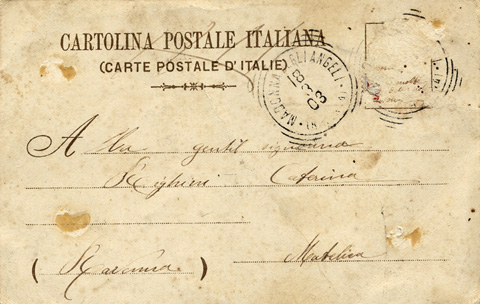 CARTOLINA POSTALE ITALIANA
(CARTE POSTALE D'ITALIE)
MADONNA ANGELI
18 3 03
Alla gentil signorina
Righini Caterina
Matelica
(Macerata)